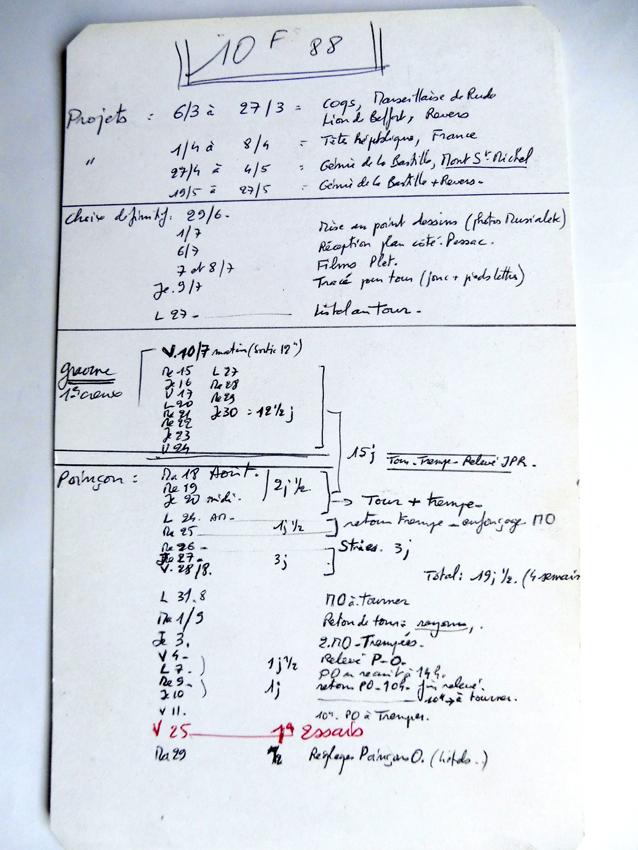 10 F 88
Projets : 6/3 à 27/3 = Coqs, Marseillaise de Rude
Lion de Belfort, Revers
" 1/4 à 8/4 = Tête République, France
27/4 à 4/5 = Génie de la Bastille, Mont St Michel
19/5 à 27/5 = Génie de la Bastille + Revers -
Choix définitif: 29/6 - Mise au point dessins (photos Musialek)
1/7 Réception plan côté - Pessac.
6/7 Films Plet.
7 et 8/7 Tracé pour tour (jonc + pieds lettres)
Je. 9/7
L 27 - Listel au Tour -
V. 10/7 matin (Sortie 12h)
gravure Me 15 L 27
1ère creuse Je 16 Ma 28
V 17 Me 29
L 20 Je 30 = 12 1/2 j
Ma 21
Me 22
Je 23
V 24
15j Tour - Trempe - Relevé JPR.
Poinçon : Ma 18 Août.
Me 19 2j 1/2
Je 20 midi. → Tour + trempe -
L 24. AM - 1j 1/2 retour trempe - enfonçage MO
Ma 25
Me 26 - Stries. 3j
Je 27 - 3j
V. 28/8.
Total: 19j 1/2. (4 semain
L 31.8 MO à tourner
Ma 1/9 Retour de tour = rayons,.
Je 3. 2 MO - Trempées.
V 4 - 1j 1/2 Relevé P-O.
L 7 - PO en recuit à 14h.
Me 9 - 1j retour PO - 10h - fin relevé.
Je 10 à tourner.
V 11. PO à Tremper.
V 25 1er Essais
Ma 29 1/2 Réglages Poinçons O.